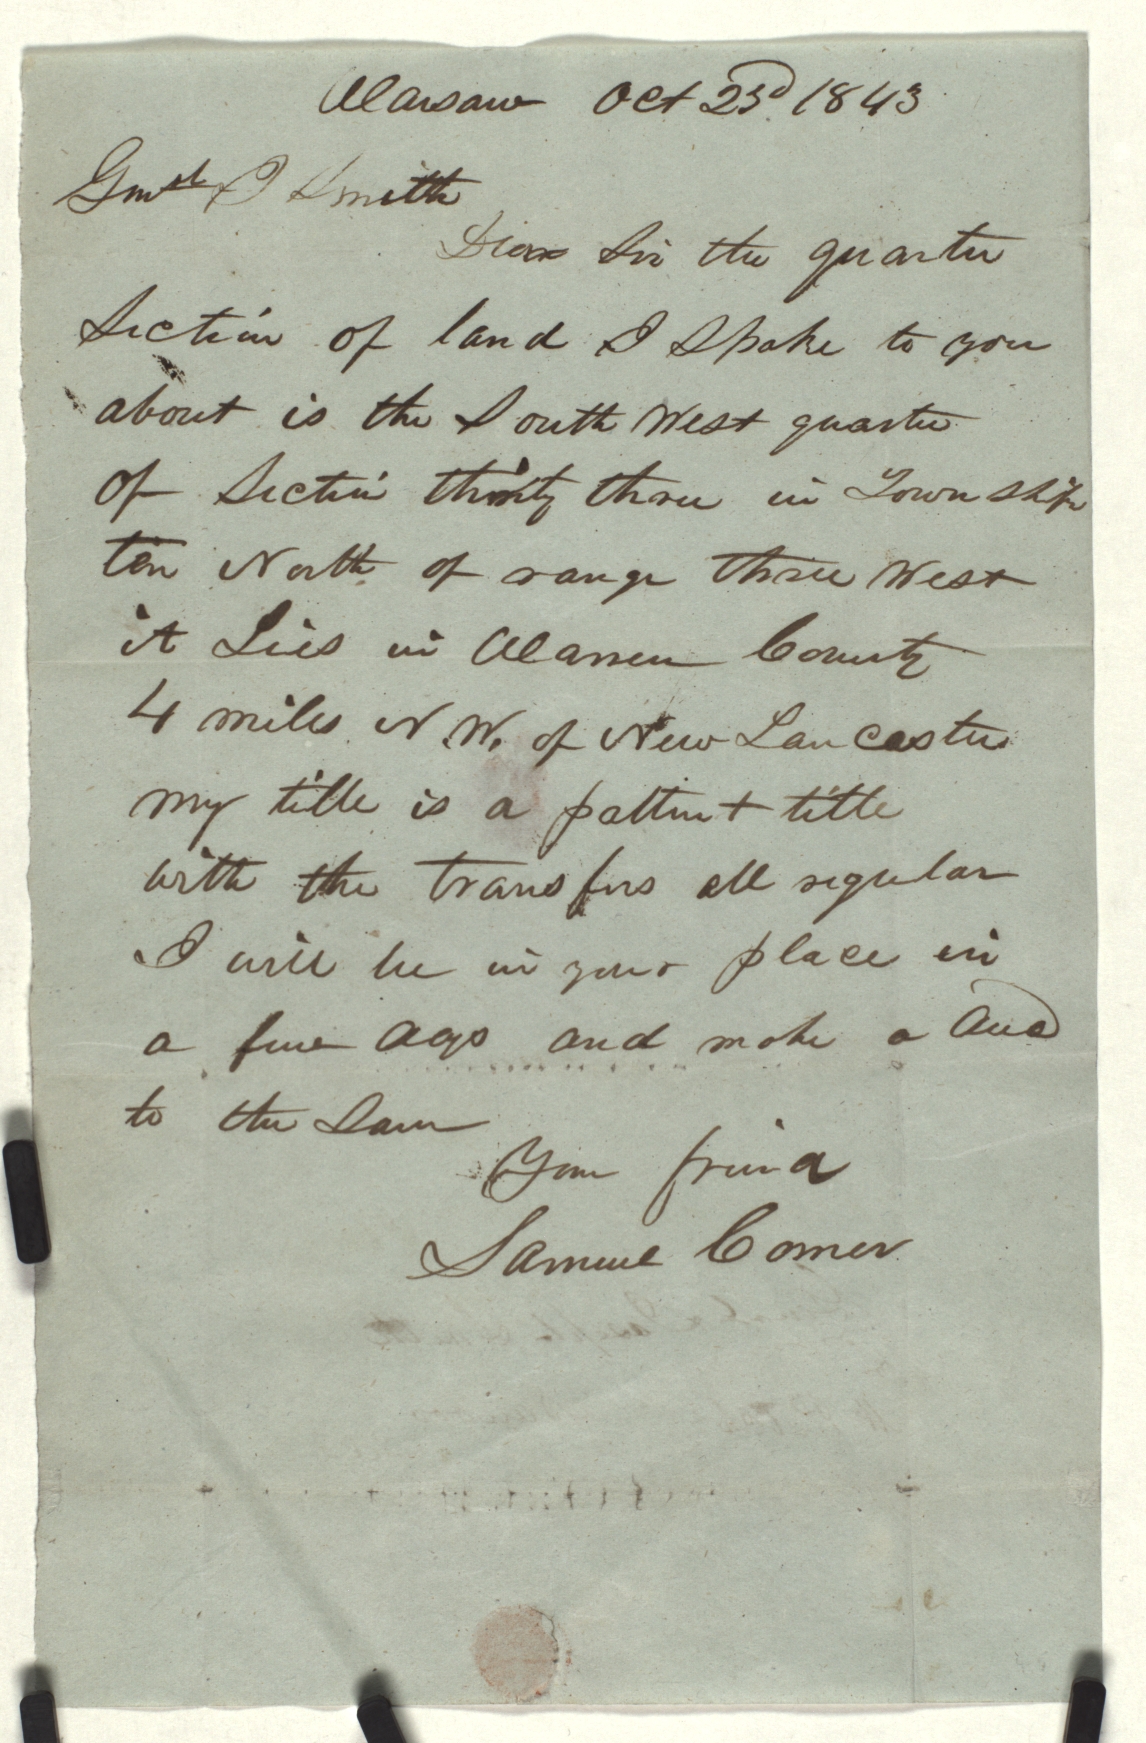 Warsaw Oct 23d 1843
Genrl J Smith
Dear Sir the quarter
Section of land I Spoke to you
about is the South West quarter
of Section thirty three in Town ship
ten North of range three West
it Lies in Warren County
4 miles N.W. of New Lancaster
my title is a pattent title
with the transfers all regular
I will be in your place in
a few days and make a deed
to the Same
Your friend
Samuel Comer